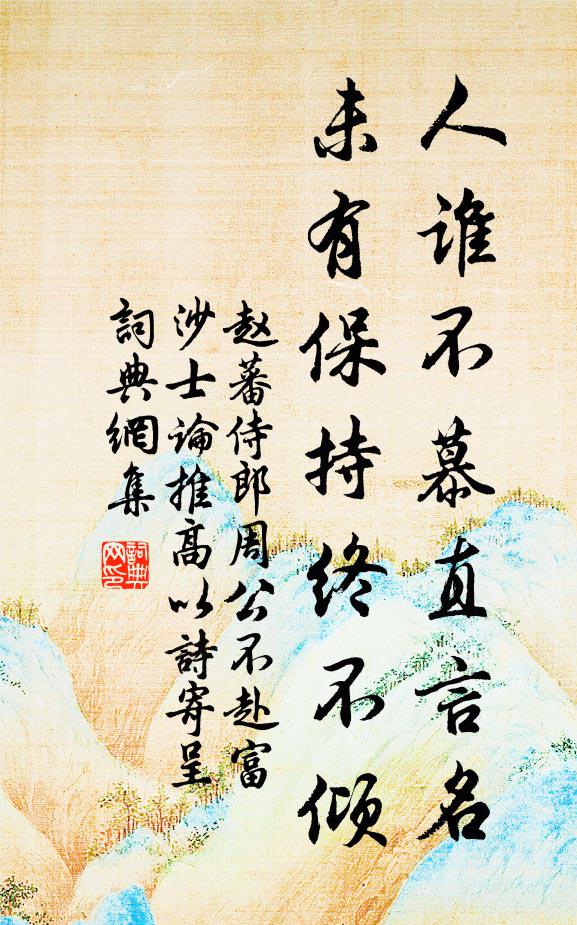 人谁不慕直言名
未有保持终不倾
赵蕃侍郎周公不赴富
沙士论推高以詩寄呈
詞典網集
詞典
网印